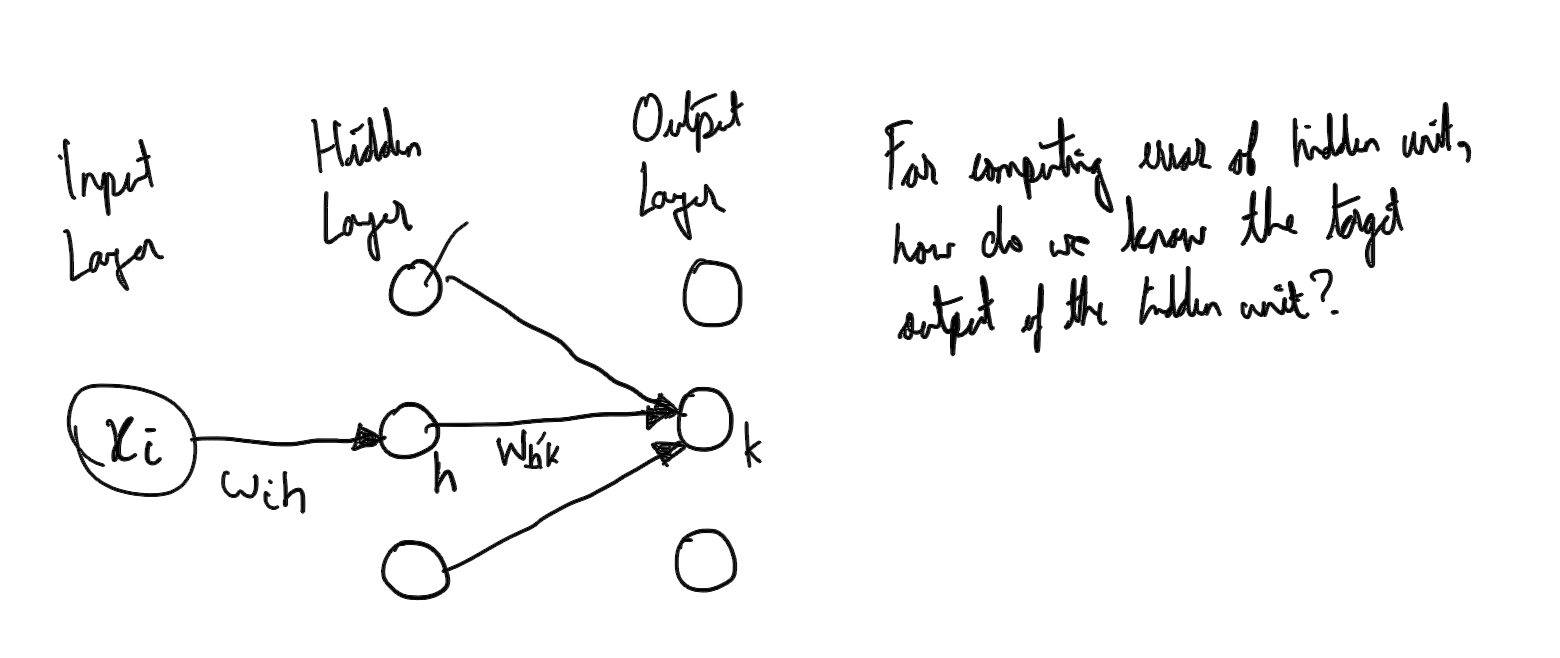 Input
Layer
Hidden
Layer
Output
Layer
For computing error of hidden unit,
how do we know the target
output of the hidden unit?
xi
wih
h
whk
k